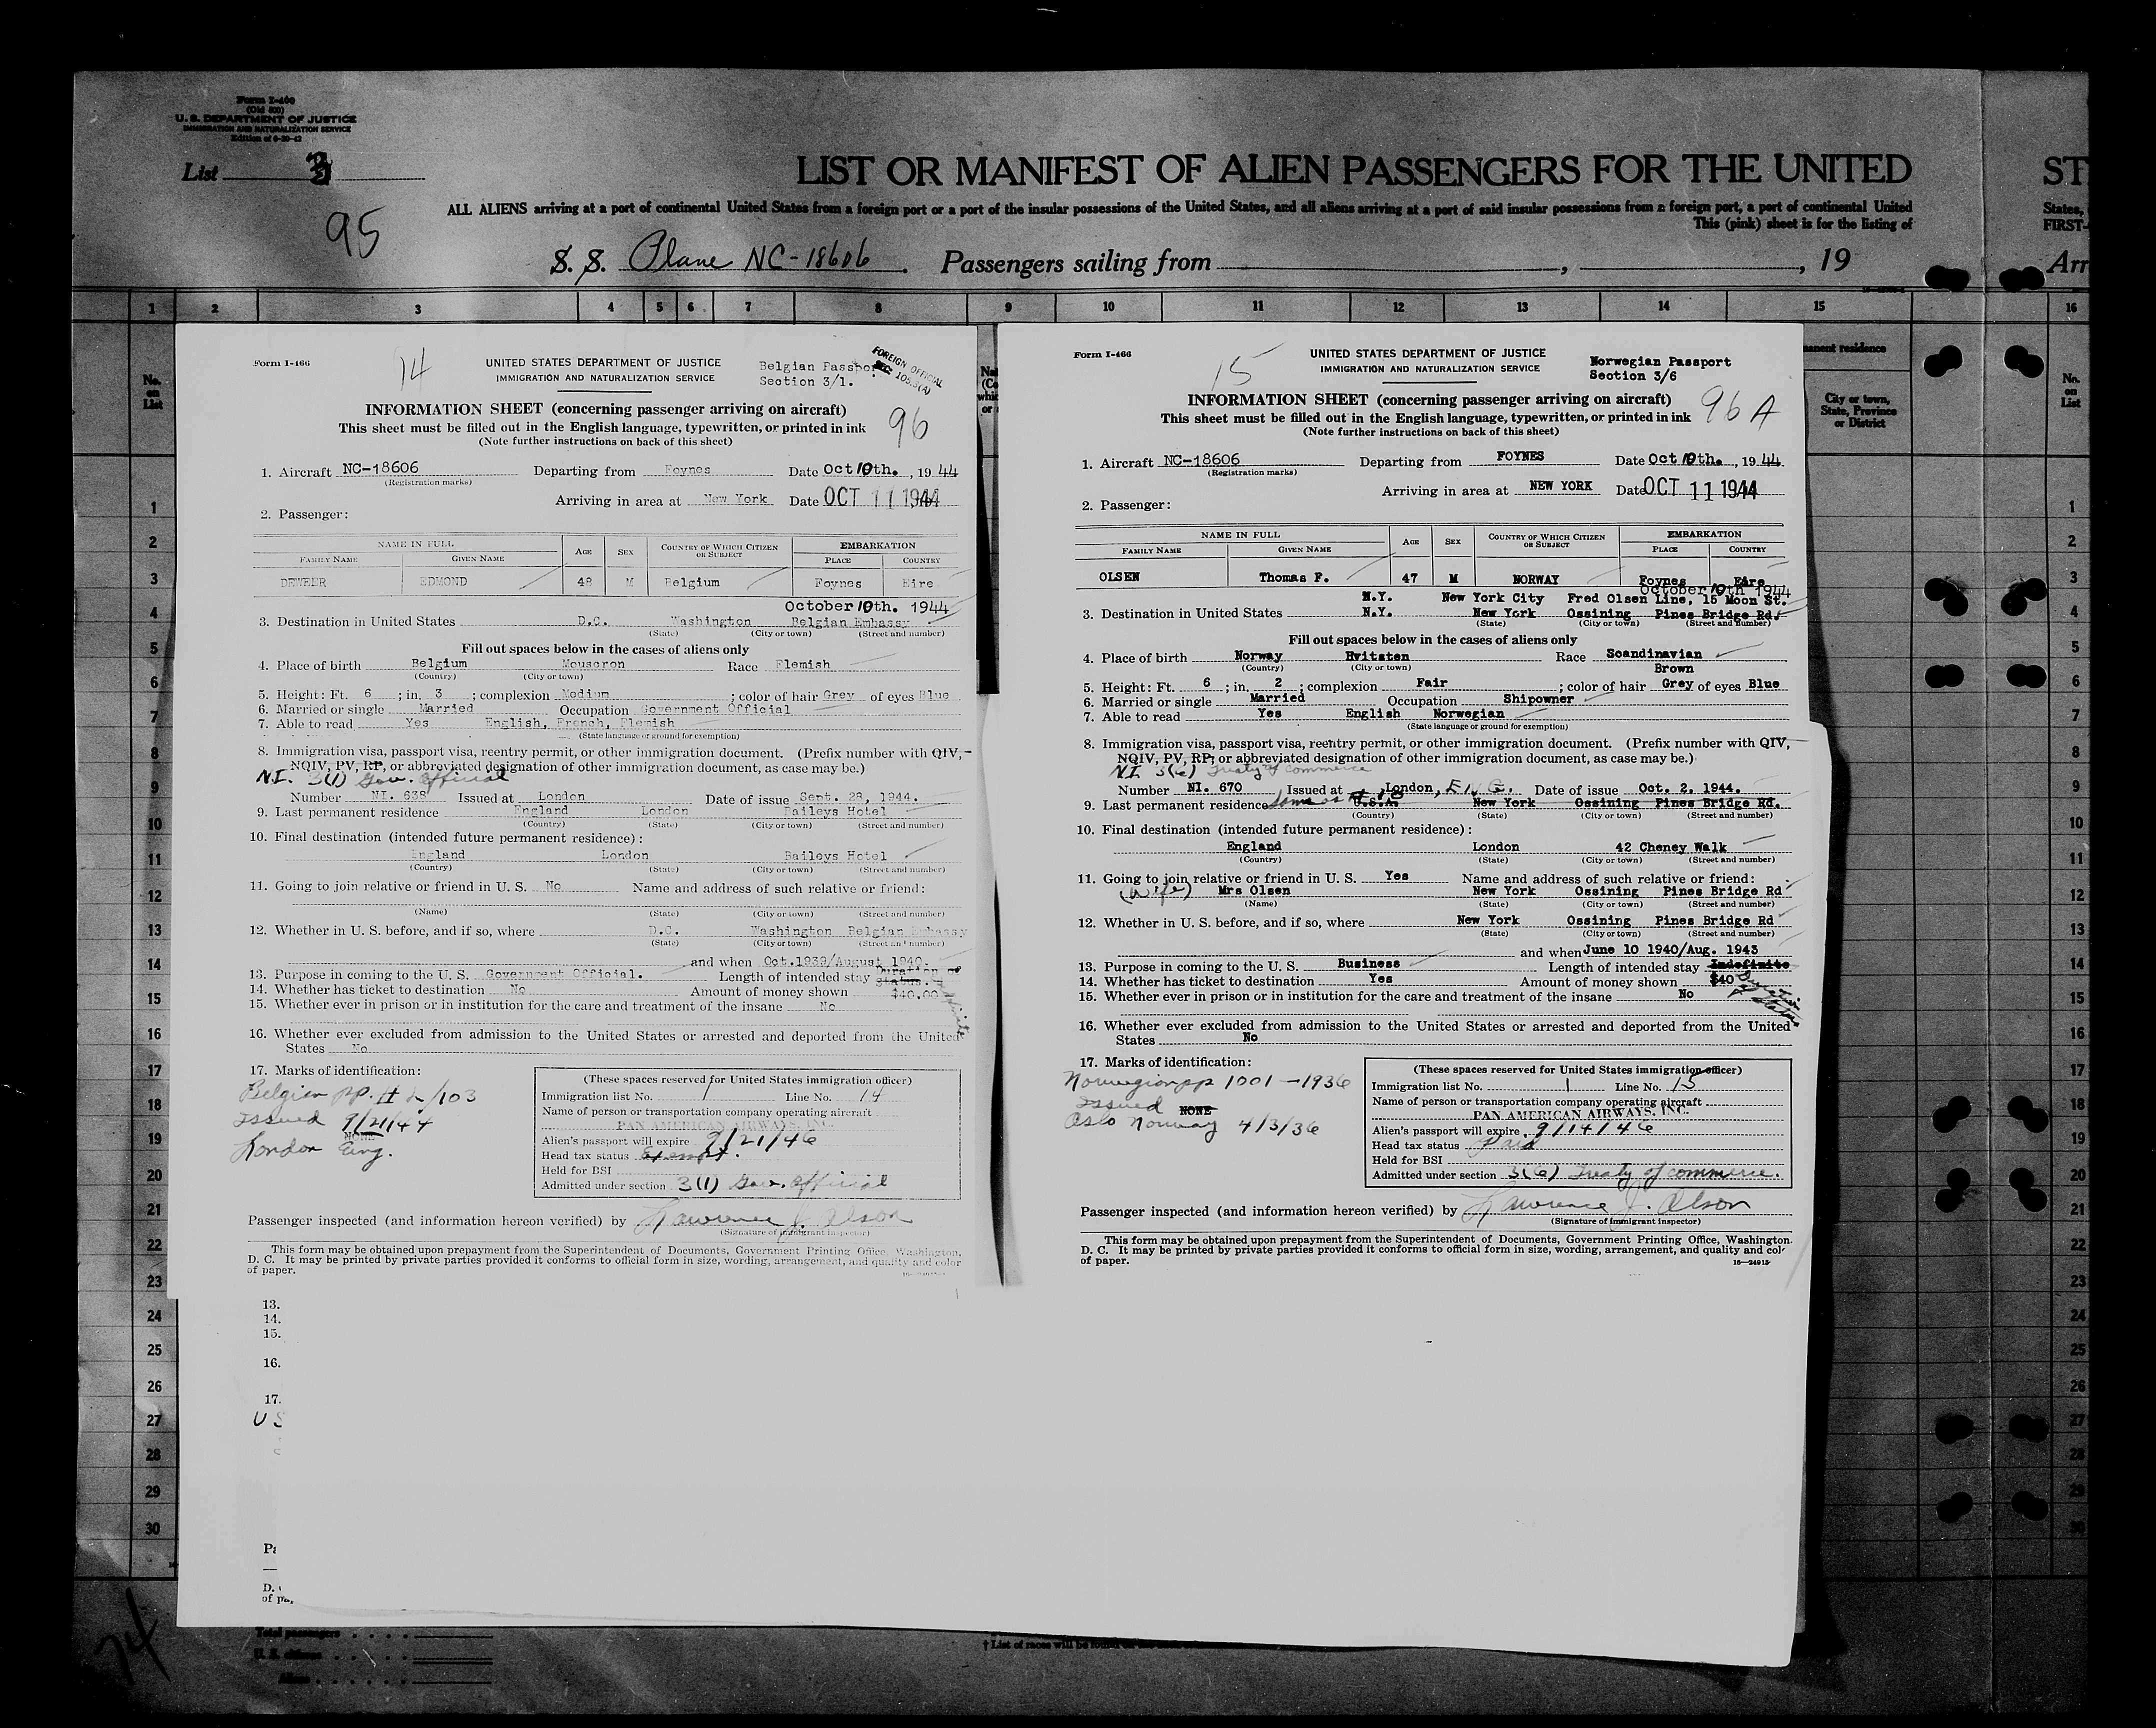 Form I-400
(Old 500)
U. S. DEPARTMENT OF JUSTICE
IMMIGRATION AND NATURALIZATION SERVICE
Edition of 6-20-42
List 3
95
LIST OR MANIFEST OF ALIEN PASSENGERS FOR THE UNITED
ST
ALL ALIENS arriving at a port of continental United States from a foreign port or a port of the insular possessions of the United States, and all aliens arriving at a port of said insular possessions from a foreign port, a port of continental United
States,
This (pink) sheet is for the listing of
FIRST-
S. S. Plane NC-18606. Passengers sailing from , , 19
Arr
1 2 3 4 5 6 7 8 9 10 11 12 13 14 15 16
No. on List
manent residence
City or town, State, Province or District
No. on List
Form I-466
14
UNITED STATES DEPARTMENT OF JUSTICE
IMMIGRATION AND NATURALIZATION SERVICE
Belgian Passpor
Section 3/1.
FOREIGN OFFICIAL
SEC. 105.3(A)
INFORMATION SHEET (concerning passenger arriving on aircraft)
This sheet must be filled out in the English language, typewritten, or printed in ink
(Note further instructions on back of this sheet)
96
1. Aircraft NC-18606 Departing from Foynes Date Oct 10th., 19 44
(Registration marks)
Arriving in area at New York Date OCT 11 1944
2. Passenger:
NAME IN FULL AGE SEX COUNTRY OF WHICH CITIZEN OR SUBJECT EMBARKATION
FAMILY NAME GIVEN NAME PLACE COUNTRY
DEWEER EDMOND 48 M Belgium Foynes Eire
October 10th. 1944
3. Destination in United States D.C. Washington Belgian Embassy
(State) (City or town) (Street and number)
Fill out spaces below in the cases of aliens only
4. Place of birth Belgium Mouscron Race Flemish
(Country) (City or town)
5. Height: Ft. 6 ; in. 3 ; complexion Medium ; color of hair Grey of eyes Blue
6. Married or single Married Occupation Government Official
7. Able to read Yes English, French, Flemish
(State language or ground for exemption)
8. Immigration visa, passport visa, reentry permit, or other immigration document. (Prefix number with QIV,
NQIV, PV, RP, or abbreviated designation of other immigration document, as case may be.)
N.I. 3(1) Gov. Official
Number NI. 638 Issued at London Date of issue Sept. 28, 1944.
9. Last permanent residence England London Baileys Hotel
(Country) (State) (City or town) (Street and number)
10. Final destination (intended future permanent residence):
England London Baileys Hotel
(Country) (State) (City or town) (Street and number)
11. Going to join relative or friend in U. S. No Name and address of such relative or friend:
(Name) (State) (City or town) (Street and number)
12. Whether in U. S. before, and if so, where D.C. Washington Belgian Embassy
(State) (City or town) (Street and number)
and when Oct.1939/August 1940.
13. Purpose in coming to the U. S. Government Official. Length of intended stay Duration of Status.
14. Whether has ticket to destination No Amount of money shown $40.00
15. Whether ever in prison or in institution for the care and treatment of the insane No
16. Whether ever excluded from admission to the United States or arrested and deported from the United
States No
17. Marks of identification:
Belgian pp. # L/103
Issued 9/21/44
NONE
London Eng.
(These spaces reserved for United States immigration officer)
Immigration list No. 1 Line No. 14
Name of person or transportation company operating aircraft
PAN AMERICAN AIRWAYS, INC.
Alien's passport will expire 9/21/46
Head tax status Exempt.
Held for BSI
Admitted under section 3(1) Gov. Official
Passenger inspected (and information hereon verified) by Lawrence J. Olson
(Signature of immigrant inspector)
This form may be obtained upon prepayment from the Superintendent of Documents, Government Printing Office, Washington,
D. C. It may be printed by private parties provided it conforms to official form in size, wording, arrangement, and quality and color
of paper.
Form I-466
15
UNITED STATES DEPARTMENT OF JUSTICE
IMMIGRATION AND NATURALIZATION SERVICE
Norwegian Passport
Section 3/6
INFORMATION SHEET (concerning passenger arriving on aircraft)
This sheet must be filled out in the English language, typewritten, or printed in ink
(Note further instructions on back of this sheet)
96 A
1. Aircraft NC-18606 Departing from FOYNES Date Oct 10th., 19 44
(Registration marks)
Arriving in area at NEW YORK Date OCT 11 1944
2. Passenger:
NAME IN FULL AGE SEX COUNTRY OF WHICH CITIZEN OR SUBJECT EMBARKATION
FAMILY NAME GIVEN NAME PLACE COUNTRY
OLSEN Thomas F. 47 M NORWAY Foynes Eire
October 10th 1944
N.Y. New York City Fred Olsen Line, 15 Moon St.
3. Destination in United States N.Y. New York Ossining Pines Bridge Rd.
(State) (City or town) (Street and number)
Fill out spaces below in the cases of aliens only
4. Place of birth Norway Hvitsten Race Scandinavian
(Country) (City or town)
Brown
5. Height: Ft. 6 ; in. 2 ; complexion Fair ; color of hair Grey of eyes Blue
6. Married or single Married Occupation Shipowner
7. Able to read Yes English Norwegian
(State language or ground for exemption)
8. Immigration visa, passport visa, reentry permit, or other immigration document. (Prefix number with QIV,
NQIV, PV, RP, or abbreviated designation of other immigration document, as case may be.)
N.I. 3(6) Treaty of commerce
Number NI. 670 Issued at London, ENG. Date of issue Oct. 2, 1944.
9. Last permanent residence Same as #10 U.S.A. New York Ossining Pines Bridge Rd.
(Country) (State) (City or town) (Street and number)
10. Final destination (intended future permanent residence):
England London 42 Cheney Walk
(Country) (State) (City or town) (Street and number)
11. Going to join relative or friend in U. S. Yes Name and address of such relative or friend:
(Wife) Mrs Olsen New York Ossining Pines Bridge Rd
(Name) (State) (City or town) (Street and number)
12. Whether in U. S. before, and if so, where New York Ossining Pines Bridge Rd
(State) (City or town) (Street and number)
and when June 10 1940/Aug. 1943
13. Purpose in coming to the U. S. Business Length of intended stay Indefinite
14. Whether has ticket to destination Yes Amount of money shown $40
Duration of Status
15. Whether ever in prison or in institution for the care and treatment of the insane No
16. Whether ever excluded from admission to the United States or arrested and deported from the United
States No
17. Marks of identification:
Norwegian pp 1001-1936
Issued NONE
Oslo Norway 4/3/36
(These spaces reserved for United States immigration officer)
Immigration list No. 1 Line No. 15
Name of person or transportation company operating aircraft
PAN AMERICAN AIRWAYS, INC.
Alien's passport will expire 9/14/46
Head tax status Paid
Held for BSI
Admitted under section 3(6) Treaty of commerce.
Passenger inspected (and information hereon verified) by Lawrence J. Olson
(Signature of immigrant inspector)
This form may be obtained upon prepayment from the Superintendent of Documents, Government Printing Office, Washington.
D. C. It may be printed by private parties provided it conforms to official form in size, wording, arrangement, and quality and col
of paper.
16—24915
13.
14.
15.
16.
17.
U S
D.
of pa
Total passengers
U. S. citizens
Aliens
† List of races will be found
74
1
2
3
4
5
6
7
8
9
10
11
12
13
14
15
16
17
18
19
20
21
22
23
24
25
26
27
28
29
30
1
2
3
4
5
6
7
8
9
10
11
12
13
14
15
16
17
18
19
20
21
22
23
24
25
26
27
28
29
30